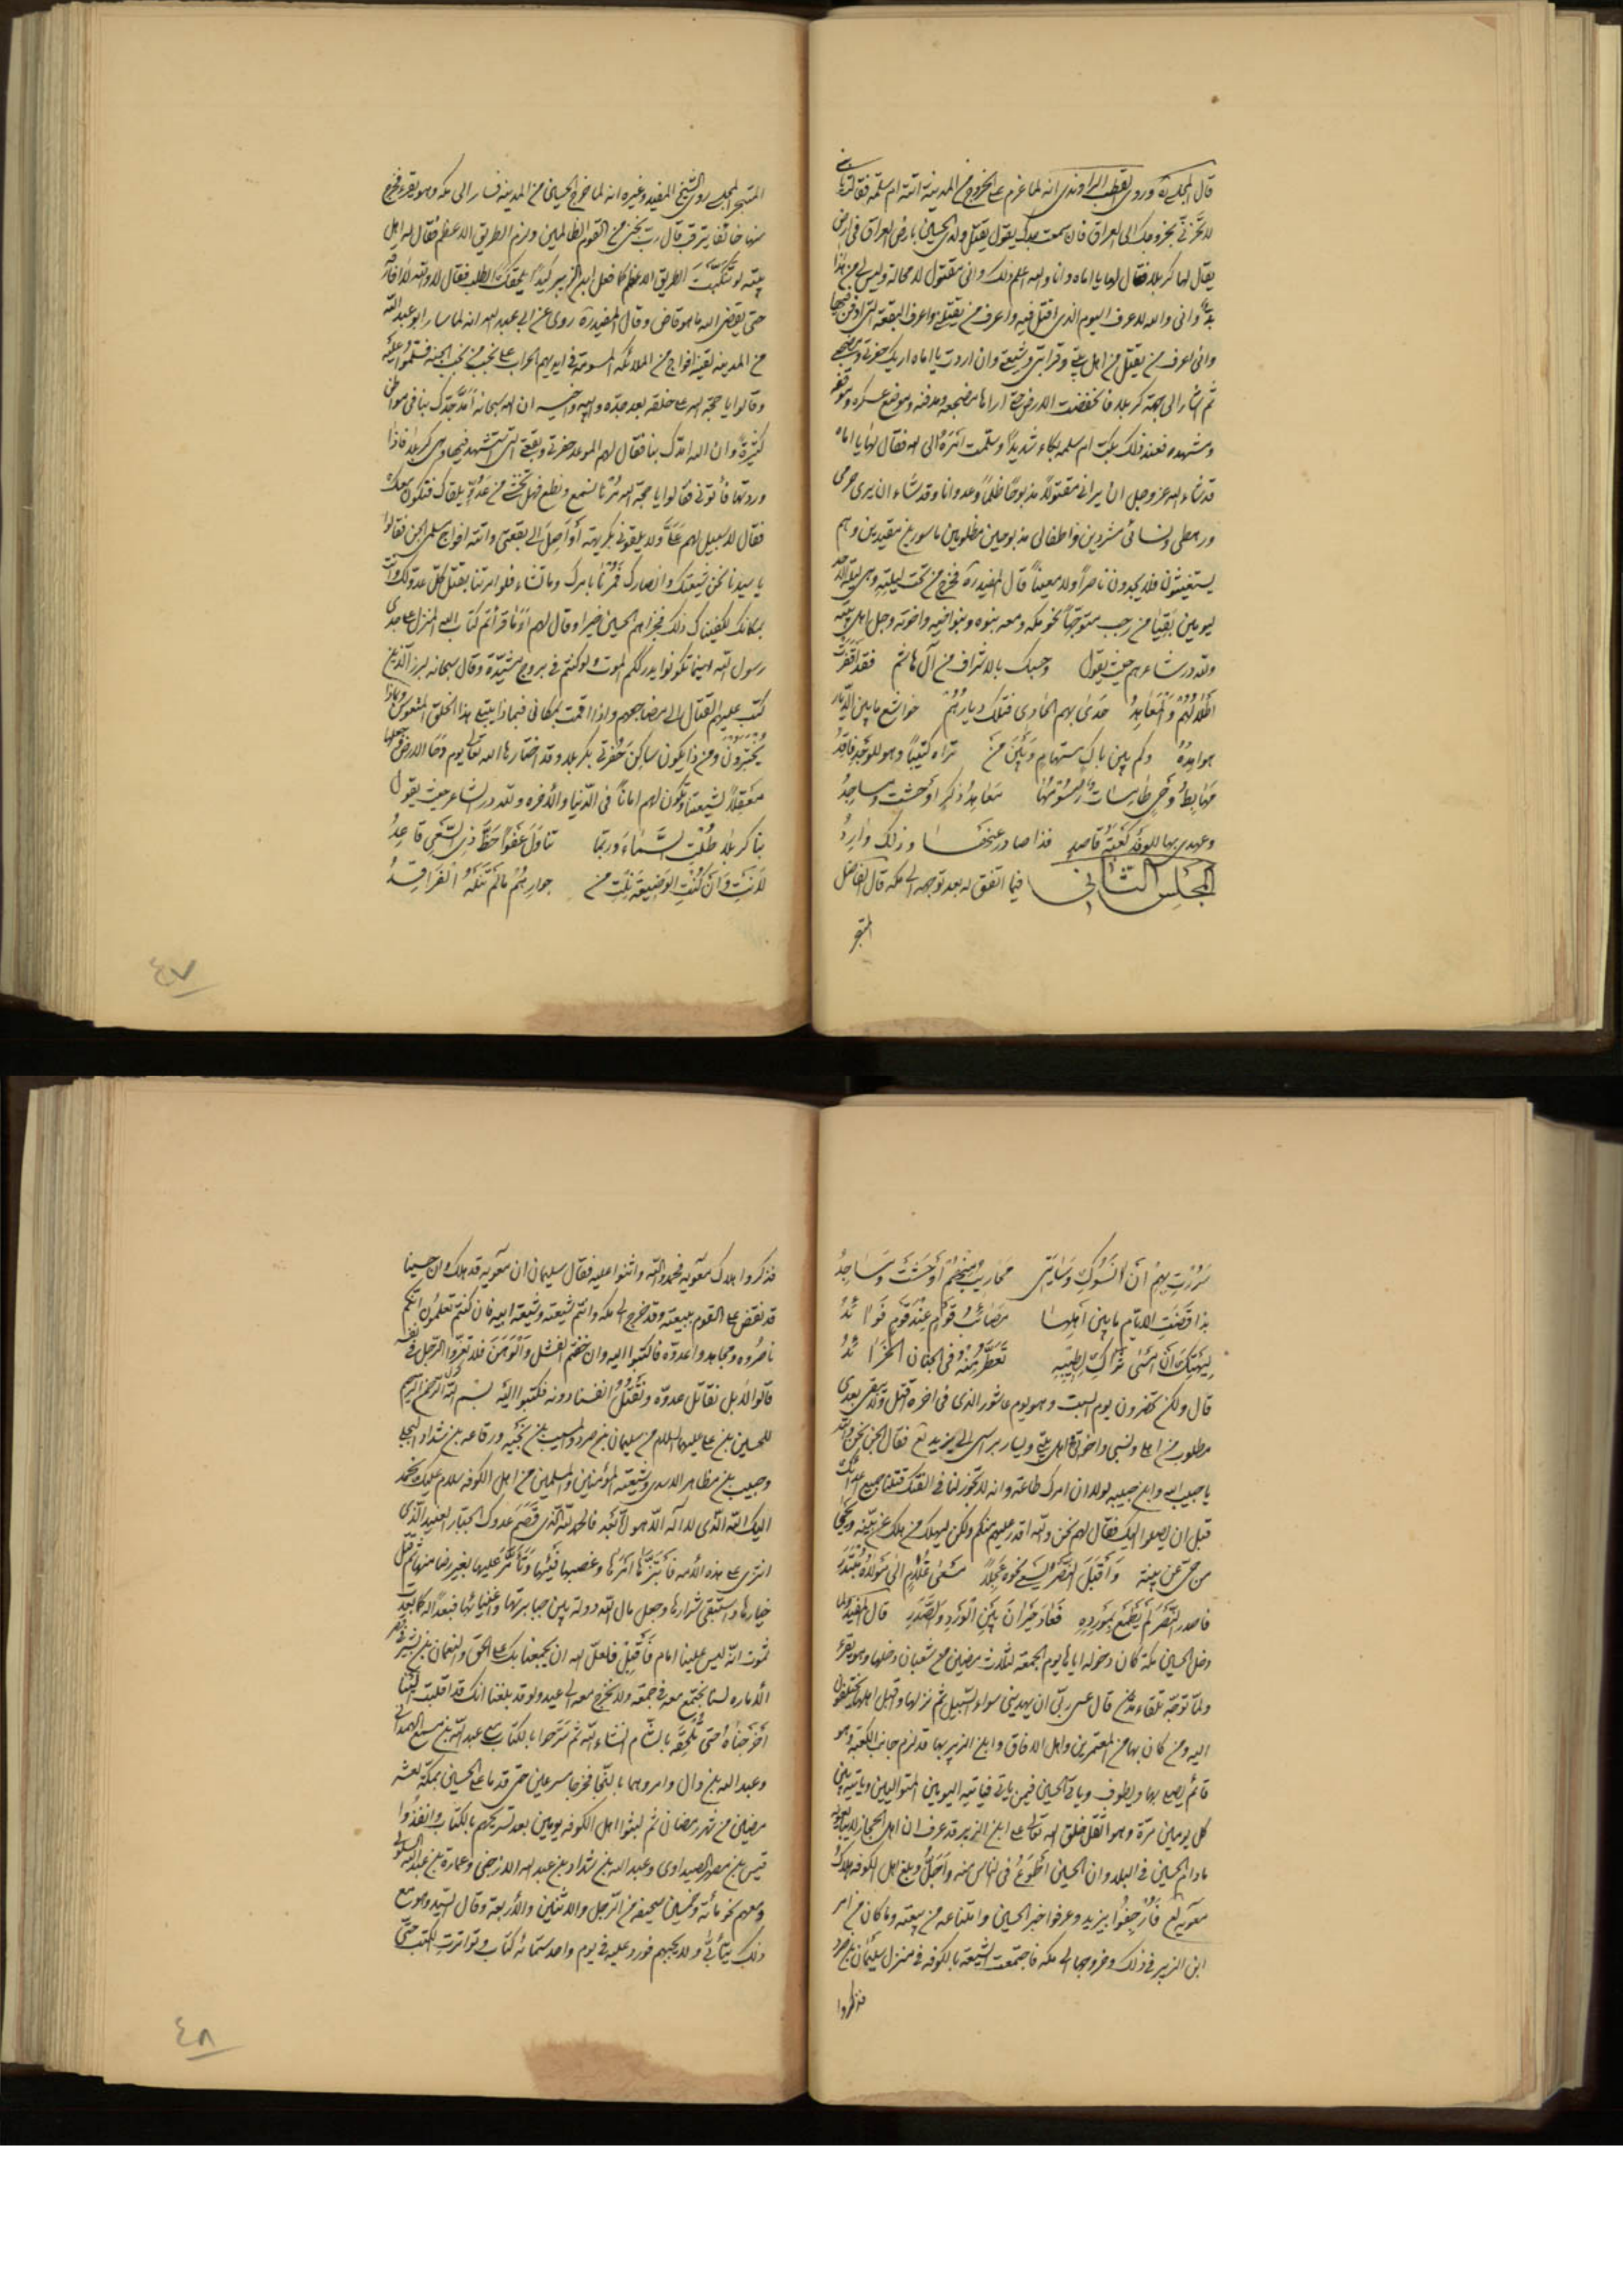 قال المجلسي ره وروى القطب الراوندي انه لما عزم على الخروج من المدينة اتته ام سلمة فقالت يا بني
لا تحزني بخروجك الى العراق فاني سمعت جدك يقول يقتل ولدي الحسين بارض العراق في ارض
يقال لها كربلا فقال لها يا اماه وانا والله اعلم ذلك واني مقتول لا محالة وليس لي من هذا
بد واني والله لاعرف اليوم الذي اقتل فيه واعرف من يقتلني واعرف البقعة التي ادفن فيها
واني اعرف من يقتل من اهل بيتي وقرابتي وشيعتي وان اردت يا اماه اريك حفرتي ومضجعي
ثم اشار الى جهة كربلا فانخفضت الارض حتى اراها مضجعه ومدفنه وموضع عسكره وموقفه
ومشهده فعند ذلك بكت ام سلمه بكاء شديدًا وسلمت امره الى الله فقال لها يا اماه
قد شاء الله عز وجل ان يراني مقتولًا مذبوحًا ظلمًا وعدوانا وقد شاء ان يرى حرمي
ورهطي ونسائي مشردين واطفالي مذبوحين مظلومين ماسورين مقيدين وهم
يستغيثون فلا يجدون ناصرًا ولا معينًا قال المفيد ره فخرج من تحت ليلته وهي ليلة الاحد
ليومين بقيا من رجب متوجهًا نحو مكه ومعه بنوه وبنو اخيه واخوته وجل اهل بيته
ولله در شاعرهم حيث يقول وحسبك بالاشراف من آل هاشم فقد اقفرت
اطلالهم والمعاهد حدى بهم الحادي فتلك ديارهم خواشع ما بين الديار
هوامد وكم بين باك مستهام وبين من تراه كئيبًا وهو للوجد فاقد
مهابط وحي طامسات رسومها معاهد ذكر اوحشت ومساجد
وعهدي بها للوفد كعبة قاصد فذا صادر عنها وذلك وارد
المجلس الثاني فيما اتفق له بعد توجهه الى مكه قال الفاضل
المتبحر
المتبحر المجلسي روى الشيخ المفيد وغيره انه لما خرج الحسين من المدينه فسار الى مكه وهو يقرء فخرج
منها خائفا يترقب قال رب نجني من القوم الظالمين ولزم الطريق الاعظم فقال له اهل
بيته لو تنكبت الطريق الاعظم كما فعل ابن الزبير كيلا يلحقك الطلب فقال لا والله لا افارقه
حتى يقضي الله ما هو قاض وقال المفيد ره روى عن ابي عبد الله انه لما سار ابو عبد الله
من المدينه لقيه افواج من الملائكه المسومة في ايديهم الحراب على نجب من نجب الجنه فسلموا عليه
وقالوا يا حجة الله على خلقه بعد جده وابيه واخيه ان الله سبحانه امد جدك بنا في مواطن
كثيرة وان الله امدك بنا فقال لهم الموعد حفرتي وبقعتي التي استشهد فيها وهي كربلا فاذا
وردتها فأتوني فقالوا يا حجة الله مرنا نسمع ونطع فهل تخشى من عدو يلقاك فنكون معك
فقال لا سبيل لهم علي ولا يلقوني بكريهة أو أصل الى بقعتي واتته افواج مسلمي الجن فقالوا
يا سيدنا نحن شيعتك وانصارك فمرنا بامرك وما تشاء فلو امرتنا بقتل كل عدو لك وانت
بمكانك لكفيناك ذلك فجزاهم الحسين خيرا وقال لهم اوما قرأتم كتاب الله المنزل على جدي
رسول الله اينما تكونوا يدرككم الموت ولو كنتم في بروج مشيدة وقال سبحانه لبرز الذين
كتب عليهم القتال الى مضاجعهم واذا اقمت بمكاني فبماذا يبتلى هذا الخلق المتعوس وبماذا
يختبرون ومن ذا يكون ساكن حفرتي بكربلا وقد اختارها الله تعالى يوم دحا الارض وجعلها
معقلًا لشيعتنا وتكون لهم امانًا في الدنيا والآخره ولله در الشاعر حيث يقول
بنا كربلا طلت السماء وربما تناول عفوًا حظ ذي السعي قاعد
لانت وان كنت الوضيعة نلت من جوارهم ما لم تنله الفراقد
٤٧
سررت بهم ان انسوك وساءني محاريب منهم اوحشت ومساجد
بذا قضت الايام ما بين اهلها مصائب قوم عند قوم فوائد
ليهنك ان امسى ثراك لطيبه تعطر منه في الجنان الخرائد
قال ولكن تحضرون يوم السبت وهو يوم عاشورا الذي في آخره اقتل ولا يبقى بعدي
مطلوب من اهلي ونسبي واخوتي واهل بيتي ويسار براسي الى يزيد لع فقال الجن نحن والله
يا حبيب الله وابن حبيبه لولا ان امرك طاعة وانه لا يجوز لنا مخالفتك قتلنا جميع اعدائك
قبل ان يصلوا اليك فقال لهم نحن والله اقدر عليهم منكم ولكن ليهلك من هلك عن بينه ويحيى
من حي عن بينة واقبل النصر يسعى نحوه عجلًا مسعى غلام الى مولاه يبتدر
فاصدر النصر لم يطمع بمورده فعاد حيران بين الورد والصدر قال المفيد ولما
دخل الحسين مكة كان دخوله اياها يوم الجمعة لثلاث مضين من شعبان دخلها وهو يقرء
ولما توجه تلقاء مدين قال عسى ربي ان يهديني سواء السبيل ثم نزلها واقبل اهلها يختلفون
اليه ومن كان بها من المعتمرين واهل الافاق وابن الزبير بها قد لزم جانب الكعبة وهو
قائم يصلي بها ويطوف وياتي الحسين فيمن ياتيه فياتيه اليومين المتواليين وياتيه بين
كل يومين مرة وهو اثقل خلق الله تعالى على ابن الزبير قد عرف ان اهل الحجاز لا يبايعونه
مادام الحسين في البلد وان الحسين اطوع في الناس منه واجل وبلغ اهل الكوفه هلاك
معويه لع فأرجفوا بيزيد وعرفوا خبر الحسين وامتناعه من بيعته وما كان من امر
ابن الزبير في ذلك وخروجهما الى مكه فاجتمعت الشيعة بالكوفه في منزل سليمان بن صرد
فذكروا
فذكروا هلاك معويه فحمدوا الله واثنوا عليه فقال سليمان ان معويه قد هلك وان حسينا
قد نقض على القوم ببيعته وقد خرج الى مكه وانتم شيعته وشيعة ابيه فان كنتم تعلمون انكم
ناصروه ومجاهدوا عدوه فاكتبوا اليه وان خفتم الفشل والوهن فلا تغروا الرجل في نفسه
قالوا لا بل نقاتل عدوه ونقتل انفسنا دونه فكتبوا اليه بسم الله الرحمن الرحيم
للحسين بن علي عليهما السلام من سليمان بن صرد والمسيب بن نجبه ورفاعه بن شداد البجلي
وحبيب بن مظاهر الاسدي وشيعته المؤمنين والمسلمين من اهل الكوفه سلام عليك نحمد
اليك الله الذي لا اله الا هو اما بعد فالحمد لله الذي قصم عدوك الجبار العنيد الذي
انتزى على هذه الامه فابتزها امرها وغصبها فيئها وتأمر عليها بغير رضا منها ثم قتل
خيارها واستبقى شرارها وجعل مال الله دولة بين جبابرتها واغنيائها فبعدًا له كما بعدت
ثمود انه ليس علينا امام فأقبل فلعل الله ان يجمعنا بك على الحق والنعمان بن بشير في قصر
الأماره لسنا نجتمع معه في جمعة ولا نخرج معه الى عيد ولو قد بلغنا انك قد اقبلت الينا
اخرجناه حتى نلحقه بالشام انشاء الله ثم سرحوا بالكتاب مع عبد الله بن مسمع الهمداني
وعبد الله بن وال وامروهما بالنجا فخرجا مسرعين حتى قدما على الحسين بمكة لعشر
مضين من شهر رمضان ثم لبثوا اهل الكوفه يومين بعد تسريحهم بالكتاب وانفذوا
قيس بن مصهر الصيداوي وعبد الله بن شداد بن عبد الله الارحبي وعمارة بن عبد الله السلولي
ومعهم نحو مائة وخمسين صحيفه من الرجل والاثنين والأربعة وقال السيد وهو مع
ذلك يتأبى ولا يجيبهم فورد عليه في يوم واحد ستمائه كتاب وتواترت الكتب حتى
٤٨